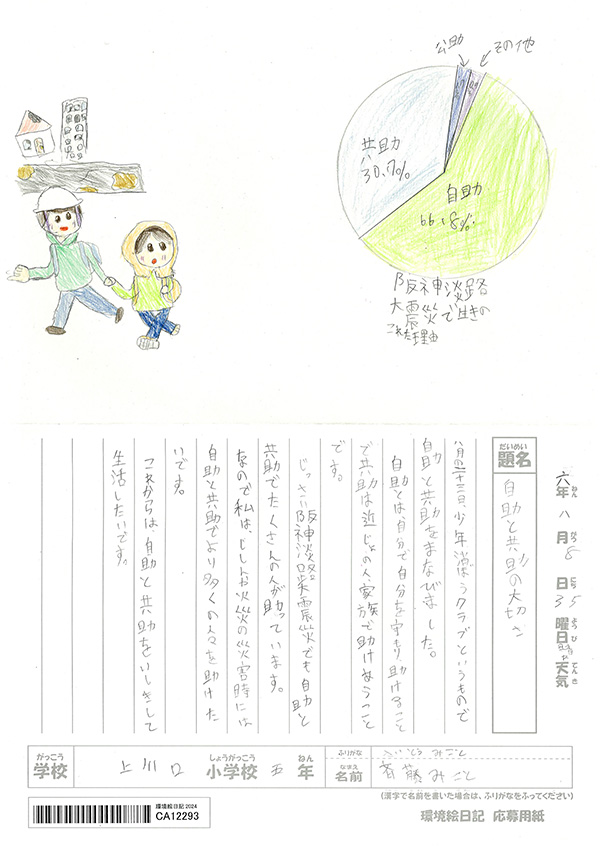 公助
その他
共助
30.7%
自助
66.8%
阪神淡路
大震災で生きの
これた理由
六年八月8日
曜日
天気
だいめい
題名
自助と共助の大切さ
八月四日二十三日、少年消ぼうクラブというもので
自助と共助をまなびました。
自助とは、自分で自分を守もり助けること
で共助は近じょの人、家族で助けあうこと
です。
じっさい阪神淡路大震災でも自助と
共助でたくさんの人が助っています。
なので私は、じしんや火災の災害時には
自助と共助でより多くの人々を助けた
いです。
これからは自助と共助をいしきして
生活したいです。
がっこう しょうがっこう ねん ふりがな みこと
学校 上川口 小学校 五 年 なまえ 名前 斉藤 みこと
(漢字で名前を書いた場合は、ふりがなをふってください)
環境絵日記 2024
CA12293
環境絵日記 応募用紙